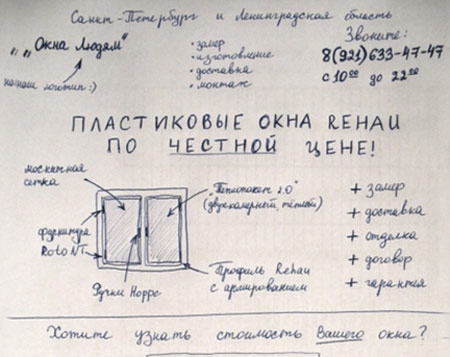 Санкт-Петербург и Ленинградская область
"Окна Людям"
наш логотип :)
• замер
• изготовление
• доставка
• монтаж
Звоните:
8(921)633-47-47
с 10⁰⁰ до 22⁰⁰
ПЛАСТИКОВЫЕ ОКНА REHAU
ПО ЧЕСТНОЙ ЦЕНЕ!
москитная
сетка
фурнитура
Roto NT
Ручки Hoppe
"Теплопакет 2.0"
(двухкамерный, тёплый)
Профиль Rehau
с армированием
+ замер
+ доставка
+ отделка
+ договор
+ гарантия
Хотите узнать стоимость Вашего окна?